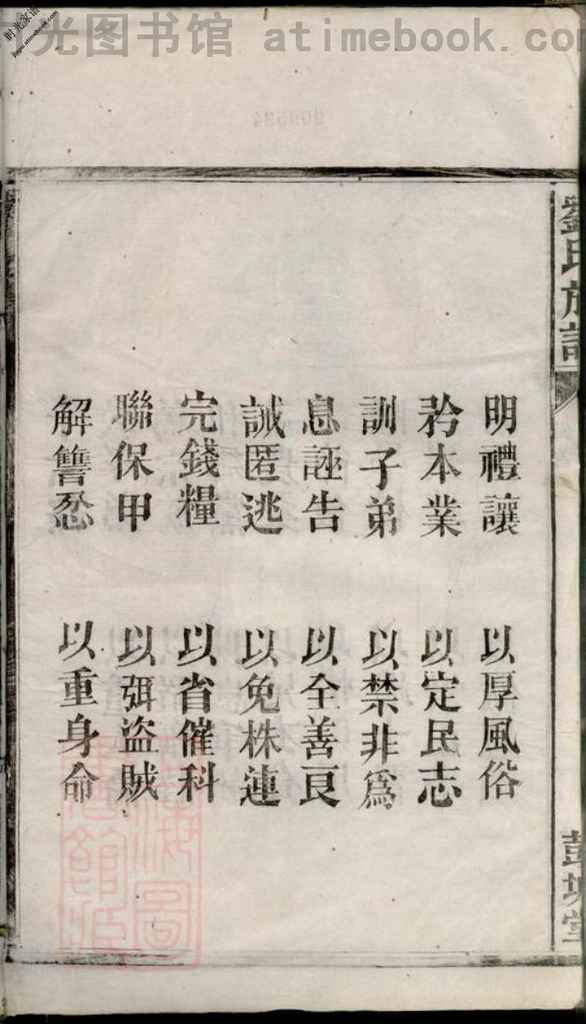 光图书馆 atimebook.com
劉氏族譜
明禮讓 以厚風俗
矜本業 以定民志
訓子弟 以禁非爲
息誣告 以全善良
誡匿逃 以免株連
完錢糧 以省催科
聯保甲 以弭盜賊
解讐忿 以重身命